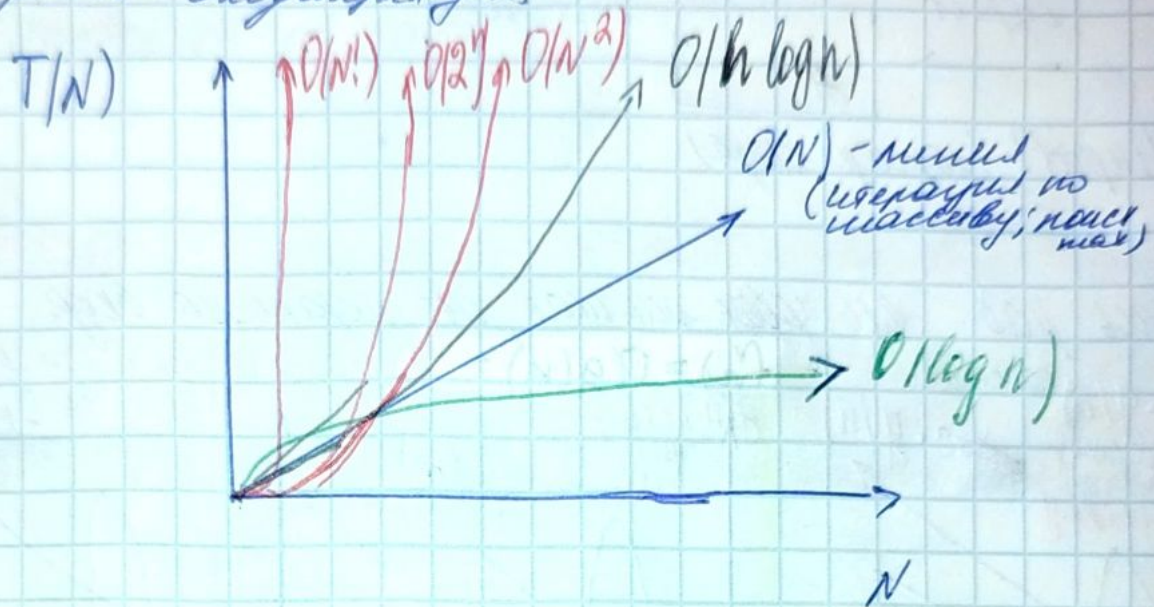 T(N)
O(N!)
O(2ⁿ)
O(N²)
O(n log n)
O(N) - линия
(итерация по
массиву; поиск
max)
O(log n)
N